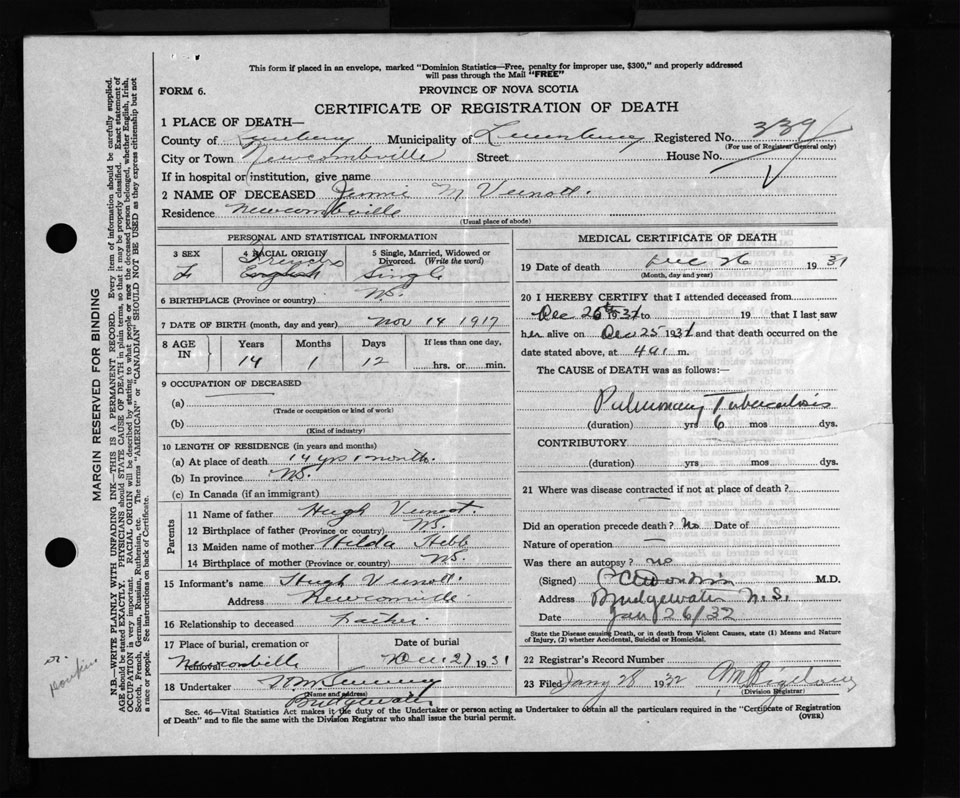 This form if placed in an envelope, marked "Dominion Statistics—Free, penalty for improper use, $300," and properly addressed
will pass through the Mail "FREE"
FORM 6.
PROVINCE OF NOVA SCOTIA
CERTIFICATE OF REGISTRATION OF DEATH
1 PLACE OF DEATH—
County of Lunenburg Municipality of Lunenburg Registered No. 339
(For use of Registrar General only)
City or Town Newcombville Street House No.
If in hospital or institution, give name
2 NAME OF DECEASED Jennie M Veinott.
Residence Newcombville
(Usual place of abode)
PERSONAL AND STATISTICAL INFORMATION
3 SEX 4 RACIAL ORIGIN 5 Single, Married, Widowed or Divorced. (Write the word)
F English Single
6 BIRTHPLACE (Province or country) N.S.
7 DATE OF BIRTH (month, day and year) Nov 14 1917
8 AGE IN Years Months Days If less than one day,
14 1 12 hrs. or min.
9 OCCUPATION OF DECEASED
(a)
(Trade or occupation or kind of work)
(b)
(Kind of industry)
10 LENGTH OF RESIDENCE (in years and months)
(a) At place of death 14 yrs 1 month.
(b) In province N.S.
(c) In Canada (if an immigrant)
Parents
11 Name of father Hugh Veinot.
12 Birthplace of father (Province or country) N.S.
13 Maiden name of mother Hilda Hebb
14 Birthplace of mother (Province or country) N.S.
15 Informant's name Hugh Veinott.
Address Newcomville
16 Relationship to deceased Father.
17 Place of burial, cremation or removal Date of burial
Newcombville Dec 27 1931
18 Undertaker
(Name and address)
Bridgewater
MEDICAL CERTIFICATE OF DEATH
19 Date of death Dec 26 1931
(Month, day and year)
20 I HEREBY CERTIFY that I attended deceased from
Dec 26th 1931 to 19 that I last saw
her alive on Dec 25 1931 and that death occurred on the
date stated above, at 4 a. m.
The CAUSE of DEATH was as follows:—
Pulmonary Tuberculosis
(duration) yrs 6 mos dys.
CONTRIBUTORY
(duration) yrs mos dys.
21 Where was disease contracted if not at place of death?
Did an operation precede death? No Date of
Nature of operation —
Was there an autopsy? no
(Signed) M.D.
Address Bridgewater N.S.
Date Jan 26/32
State the Disease causing Death, or in death from Violent Causes, state (1) Means and Nature
of Injury, (2) whether Accidental, Suicidal or Homicidal.
22 Registrar's Record Number
23 Filed Jany 28 1932
(Division Registrar)
Sec. 46—Vital Statistics Act makes it the duty of the Undertaker or person acting as Undertaker to obtain all the particulars required in the "Certificate of Registration
of Death" and to file the same with the Division Registrar who shall issue the burial permit.
(OVER)
MARGIN RESERVED FOR BINDING
N.B.—WRITE PLAINLY WITH UNFADING INK—THIS IS A PERMANENT RECORD. Every item of information should be carefully supplied.
AGE should be stated EXACTLY. PHYSICIANS should STATE CAUSE OF DEATH in plain terms, so that it may be properly classified. Exact statement of
OCCUPATION is very important. RACIAL ORIGIN will be described by stating to what people or race the deceased person belonged, whether English, Irish,
Scotch, French, German, Russian, Ruthenian, etc. The terms "AMERICAN" or "CANADIAN" SHOULD NOT BE USED as they express citizenship but not
a race or people. See instructions on back of Certificate.